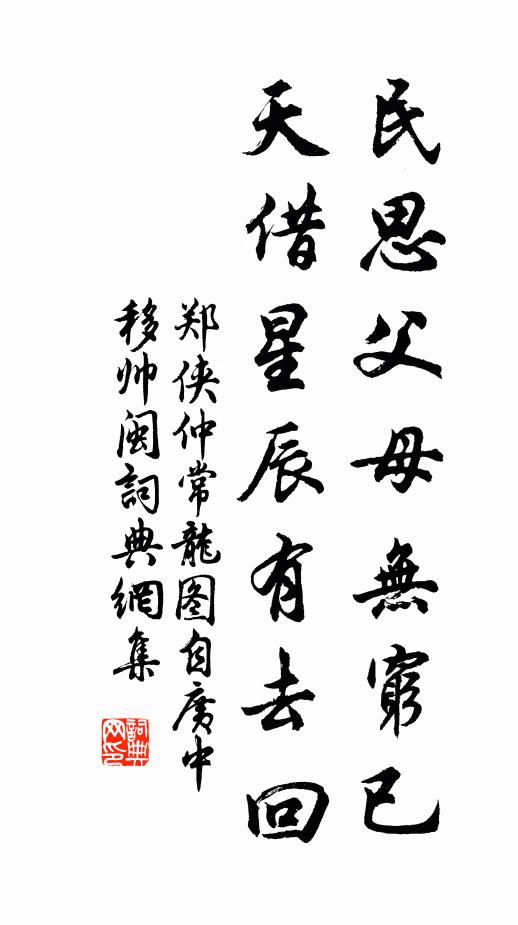 民思父母無窮已
天借星辰有去回
郑侠仲常龍图自廣中
移帅闽詞典網集
詞典网印